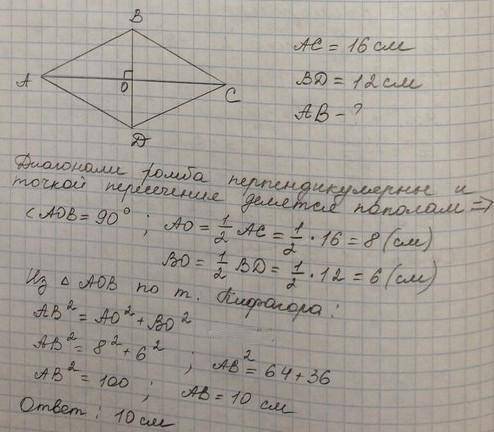 B
A
O
C
D
AC = 16 см
BD = 12 см
AB - ?
Диагонали ромба перпендикулярны и
точкой пересечение делятся пополам =>
∠AOB = 90° ; AO = 1/2 AC = 1/2 · 16 = 8 (см)
BO = 1/2 BD = 1/2 · 12 = 6 (см)
Из △ AOB по т. Пифагора:
AB² = AO² + BO²
AB² = 8² + 6² ; AB² = 64 + 36
AB² = 100 ; AB = 10 см
Ответ: 10 см